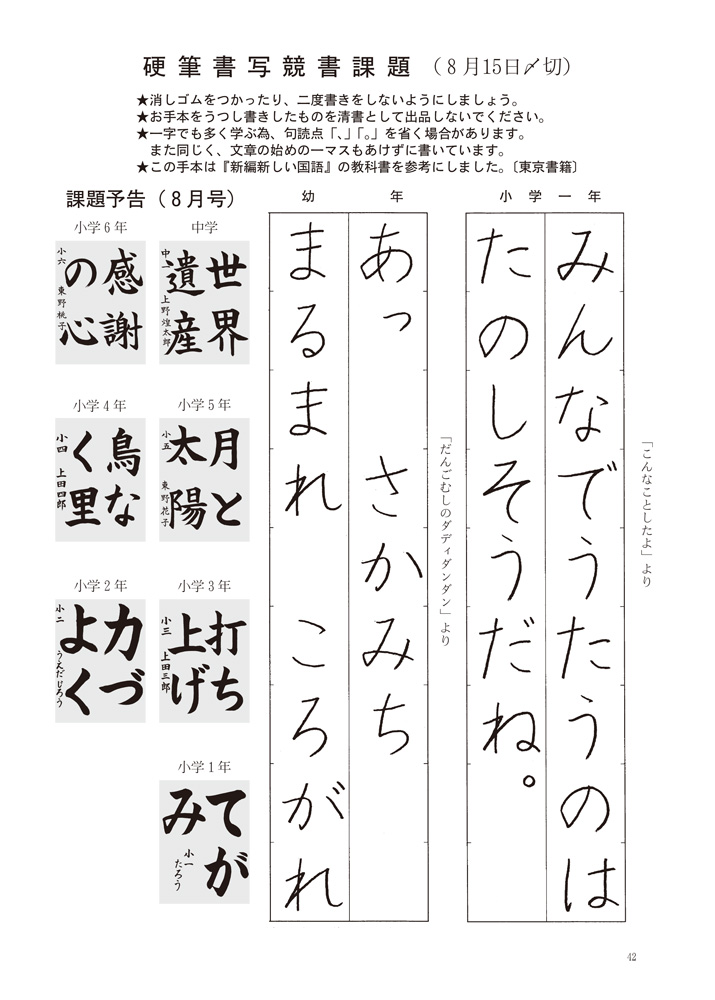 硬筆書写競書課題（８月15日〆切）
★消しゴムをつかったり、二度書きをしないようにしましょう。
★お手本をうつし書きしたものを清書として出品しないでください。
★一字でも多く学ぶ為、句読点「、」「。」を省く場合があります。
また同じく、文章の始めの一マスもあけずに書いています。
★この手本は『新編新しい国語』の教科書を参考にしました。〔東京書籍〕
小学一年
「こんなことしたよ」より
みんなでうたうのは
たのしそうだね。
幼年
「だんごむしのダディダンダン」より
あっ　さかみち
まるまれ　ころがれ
課題予告（８月号）
中学
世界
遺産
中一 上野煌太郎
小学６年
感謝
の心
小六 東野桃子
小学５年
月と
太陽
小五 東野花子
小学４年
鳥な
く里
小四 上田四郎
小学３年
打ち
上げ
小三 上田三郎
小学２年
力づ
よく
小二 うえだじろう
小学１年
てが
み
小一 たろう
42